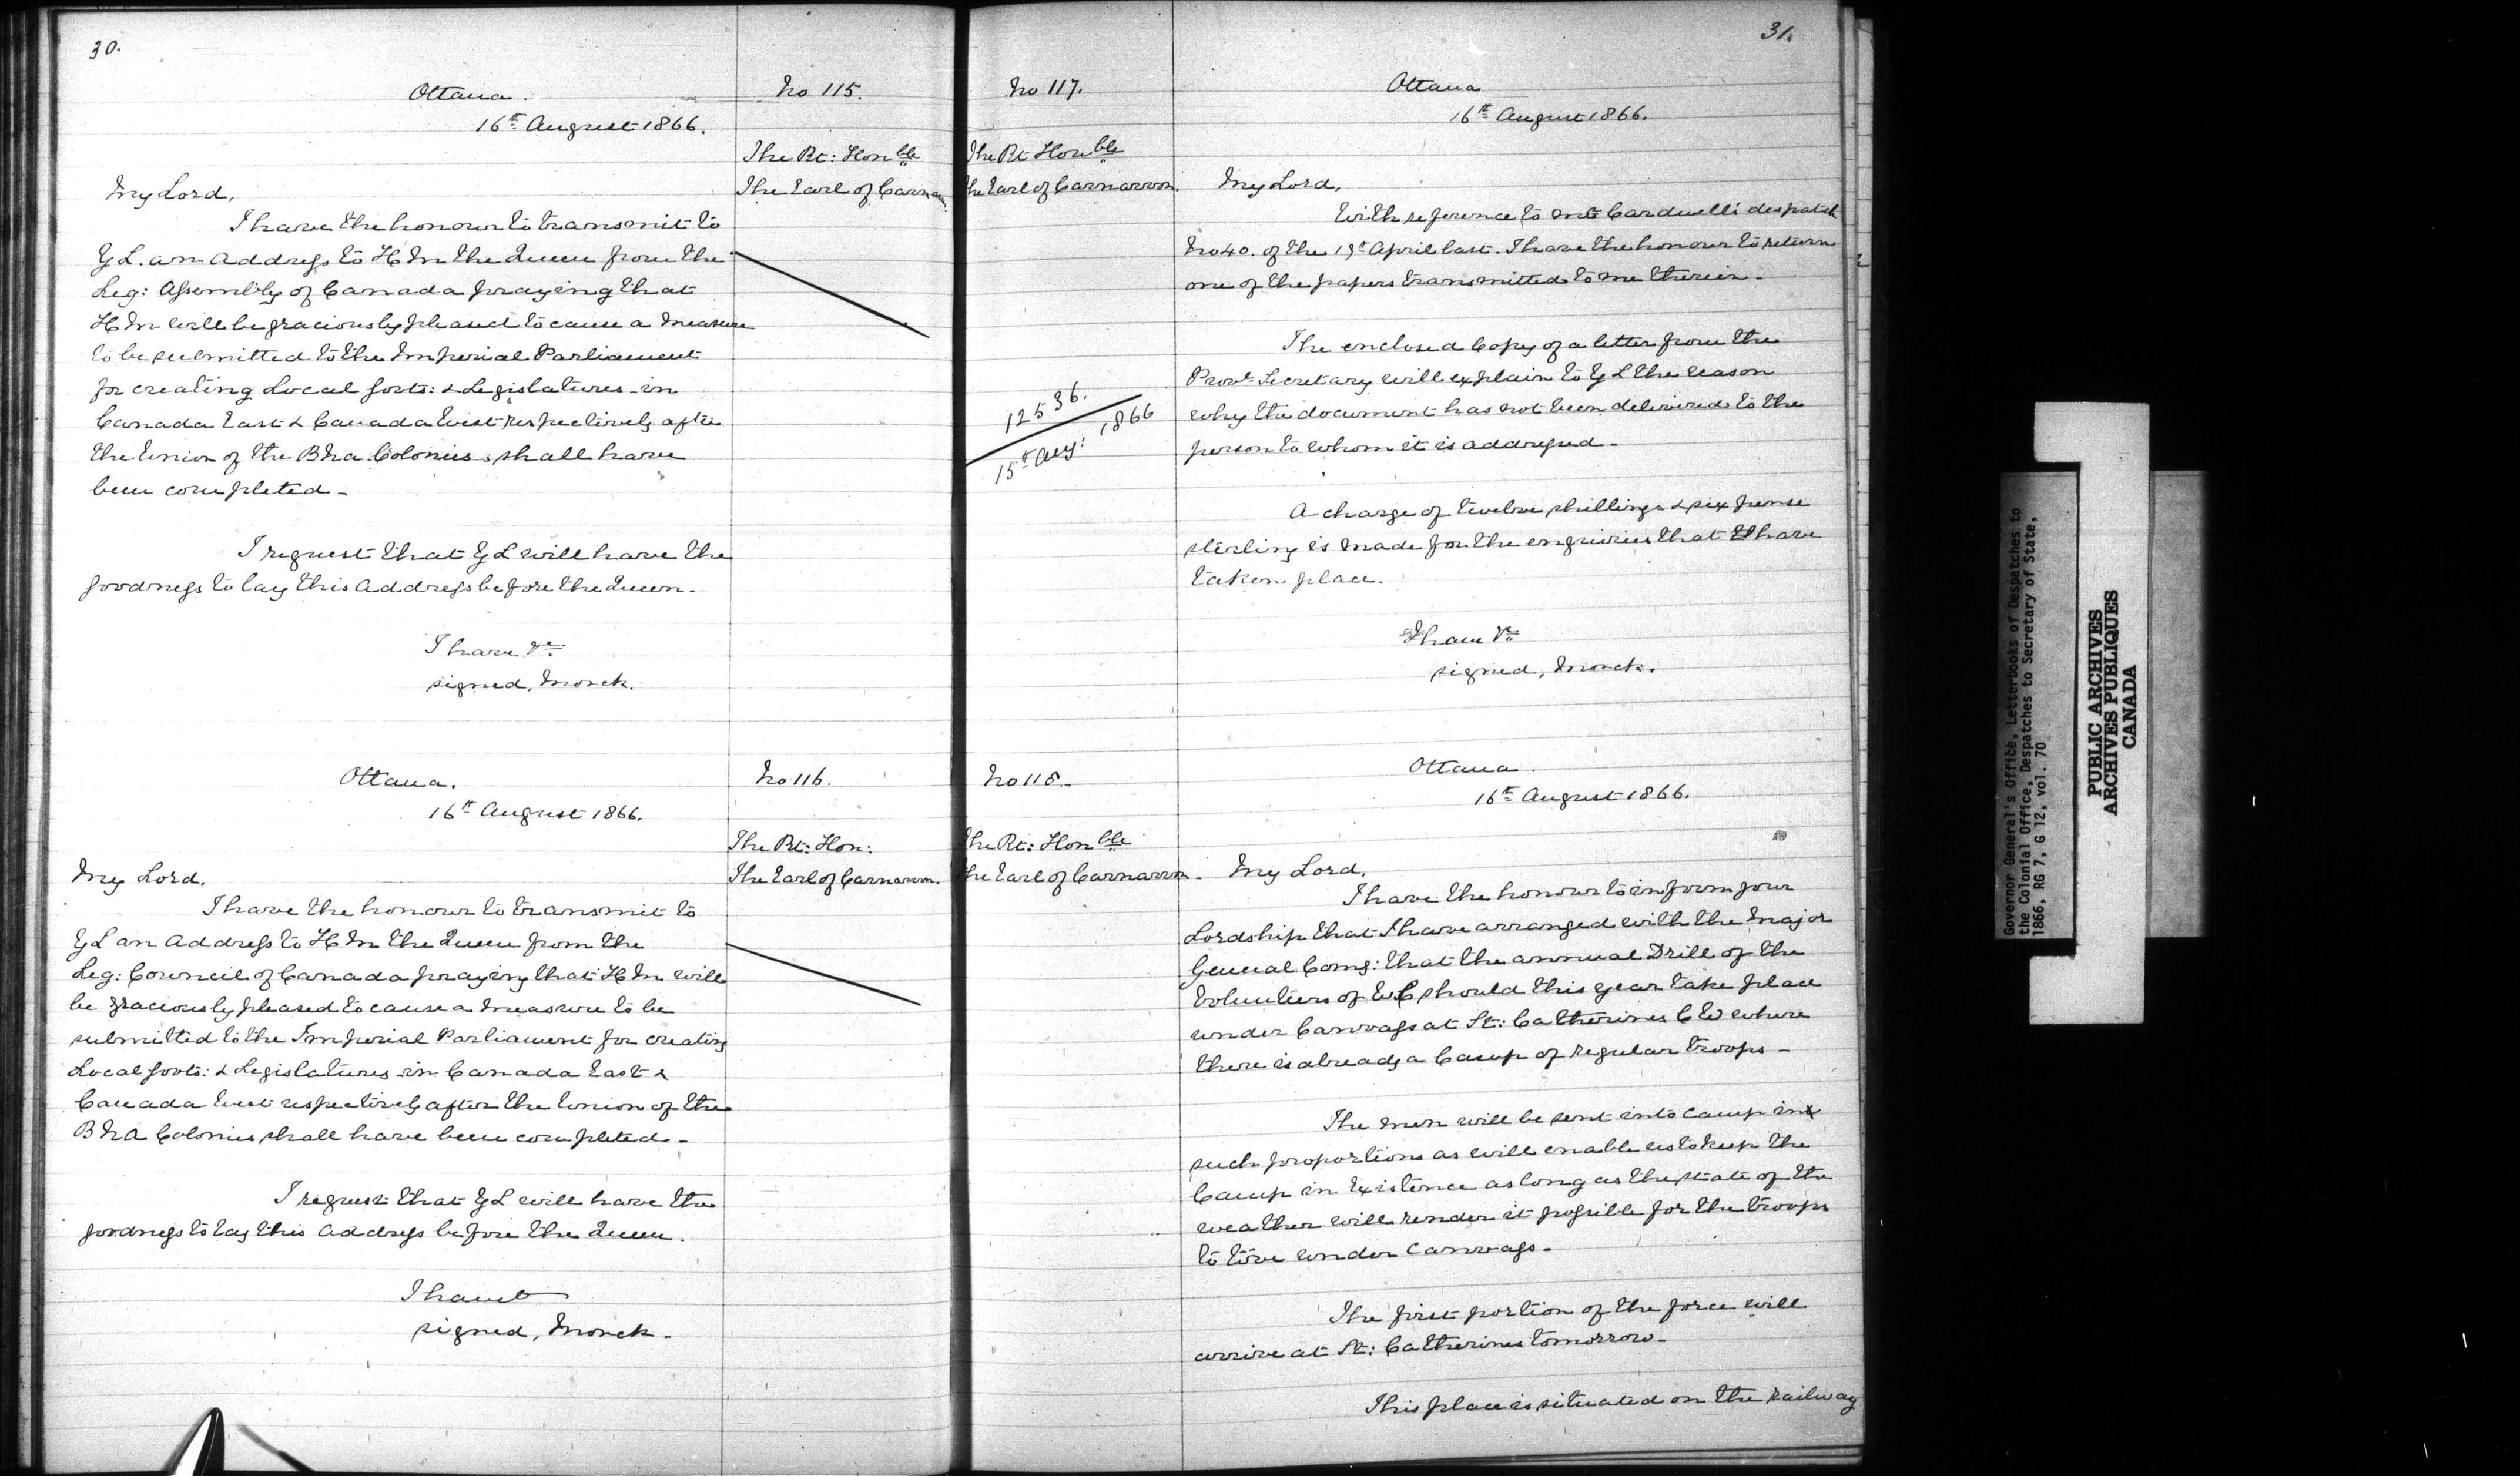 30.
Ottawa.
16th August 1866.
No 115.
The Rt: Honble
The Earl of Carnarvon.
My Lord,
I have the honour to transmit to
Y L. an Address to H M the Queen from the
Leg: Assembly of Canada praying that
H M will be graciously pleased to cause a measure
to be submitted to the Imperial Parliament
for creating Local Govts: & Legislatures in
Canada East & Canada West respectively after
the Union of the B N A Colonies shall have
been completed -
I request that Y L will have the
goodness to lay this Address before the Queen.
I have &c
signed, Monck.
Ottawa.
16th August 1866.
No 116.
The Rt: Hon:
The Earl of Carnarvon.
My Lord,
I have the honour to transmit to
Y L an Address to H M the Queen from the
Leg: Council of Canada praying that H M will
be graciously pleased to cause a measure to be
submitted to the Imperial Parliament for creating
Local Govts: & Legislatures in Canada East &
Canada West respectively after the Union of the
B N A Colonies shall have been completed. -
I request that Y L will have the
goodness to lay this Address before the Queen.
I have
signed, Monck -
31.
No 117.
Ottawa
16th August 1866.
The Rt Honble
The Earl of Carnarvon.
My Lord,
With reference to Mr Cardwell's despatch
No 40. of the April last. I have the honour to return
one of the papers transmitted to me therein -
The enclosed Copy of a letter from the
Provl Secretary will explain to Y L the reason
why the document has not been delivered to the
person to whom it is addressed -
12536.
15th Aug: 1866
A charge of twelve shillings & six pense
sterling is made for the enquiries that have
taken place.
I have &c
signed, Monck.
No 118.
Ottawa
16th August 1866.
The Rt: Honble
The Earl of Carnarvon -
My Lord,
I have the honour to inform your
Lordship that I have arranged with the Major
General Comg: that the annual Drill of the
Volunteers of W C should this year take place
under Canvass at St: Catherines C W where
there is already a Camp of regular troops -
The men will be sent into Camp in
such proportions as will enable us to keep the
Camp in Existence as long as the state of the
weather will render it possible for the troops
to live under Canvass -
The first portion of the force will
arrive at St: Catherines tomorrow -
This place is situated on the railway
Governor General's Office, Letterbooks of Despatches to
the Colonial Office, Despatches to Secretary of State,
1866, RG 7, G 12, vol. 70
PUBLIC ARCHIVES
ARCHIVES PUBLIQUES
CANADA